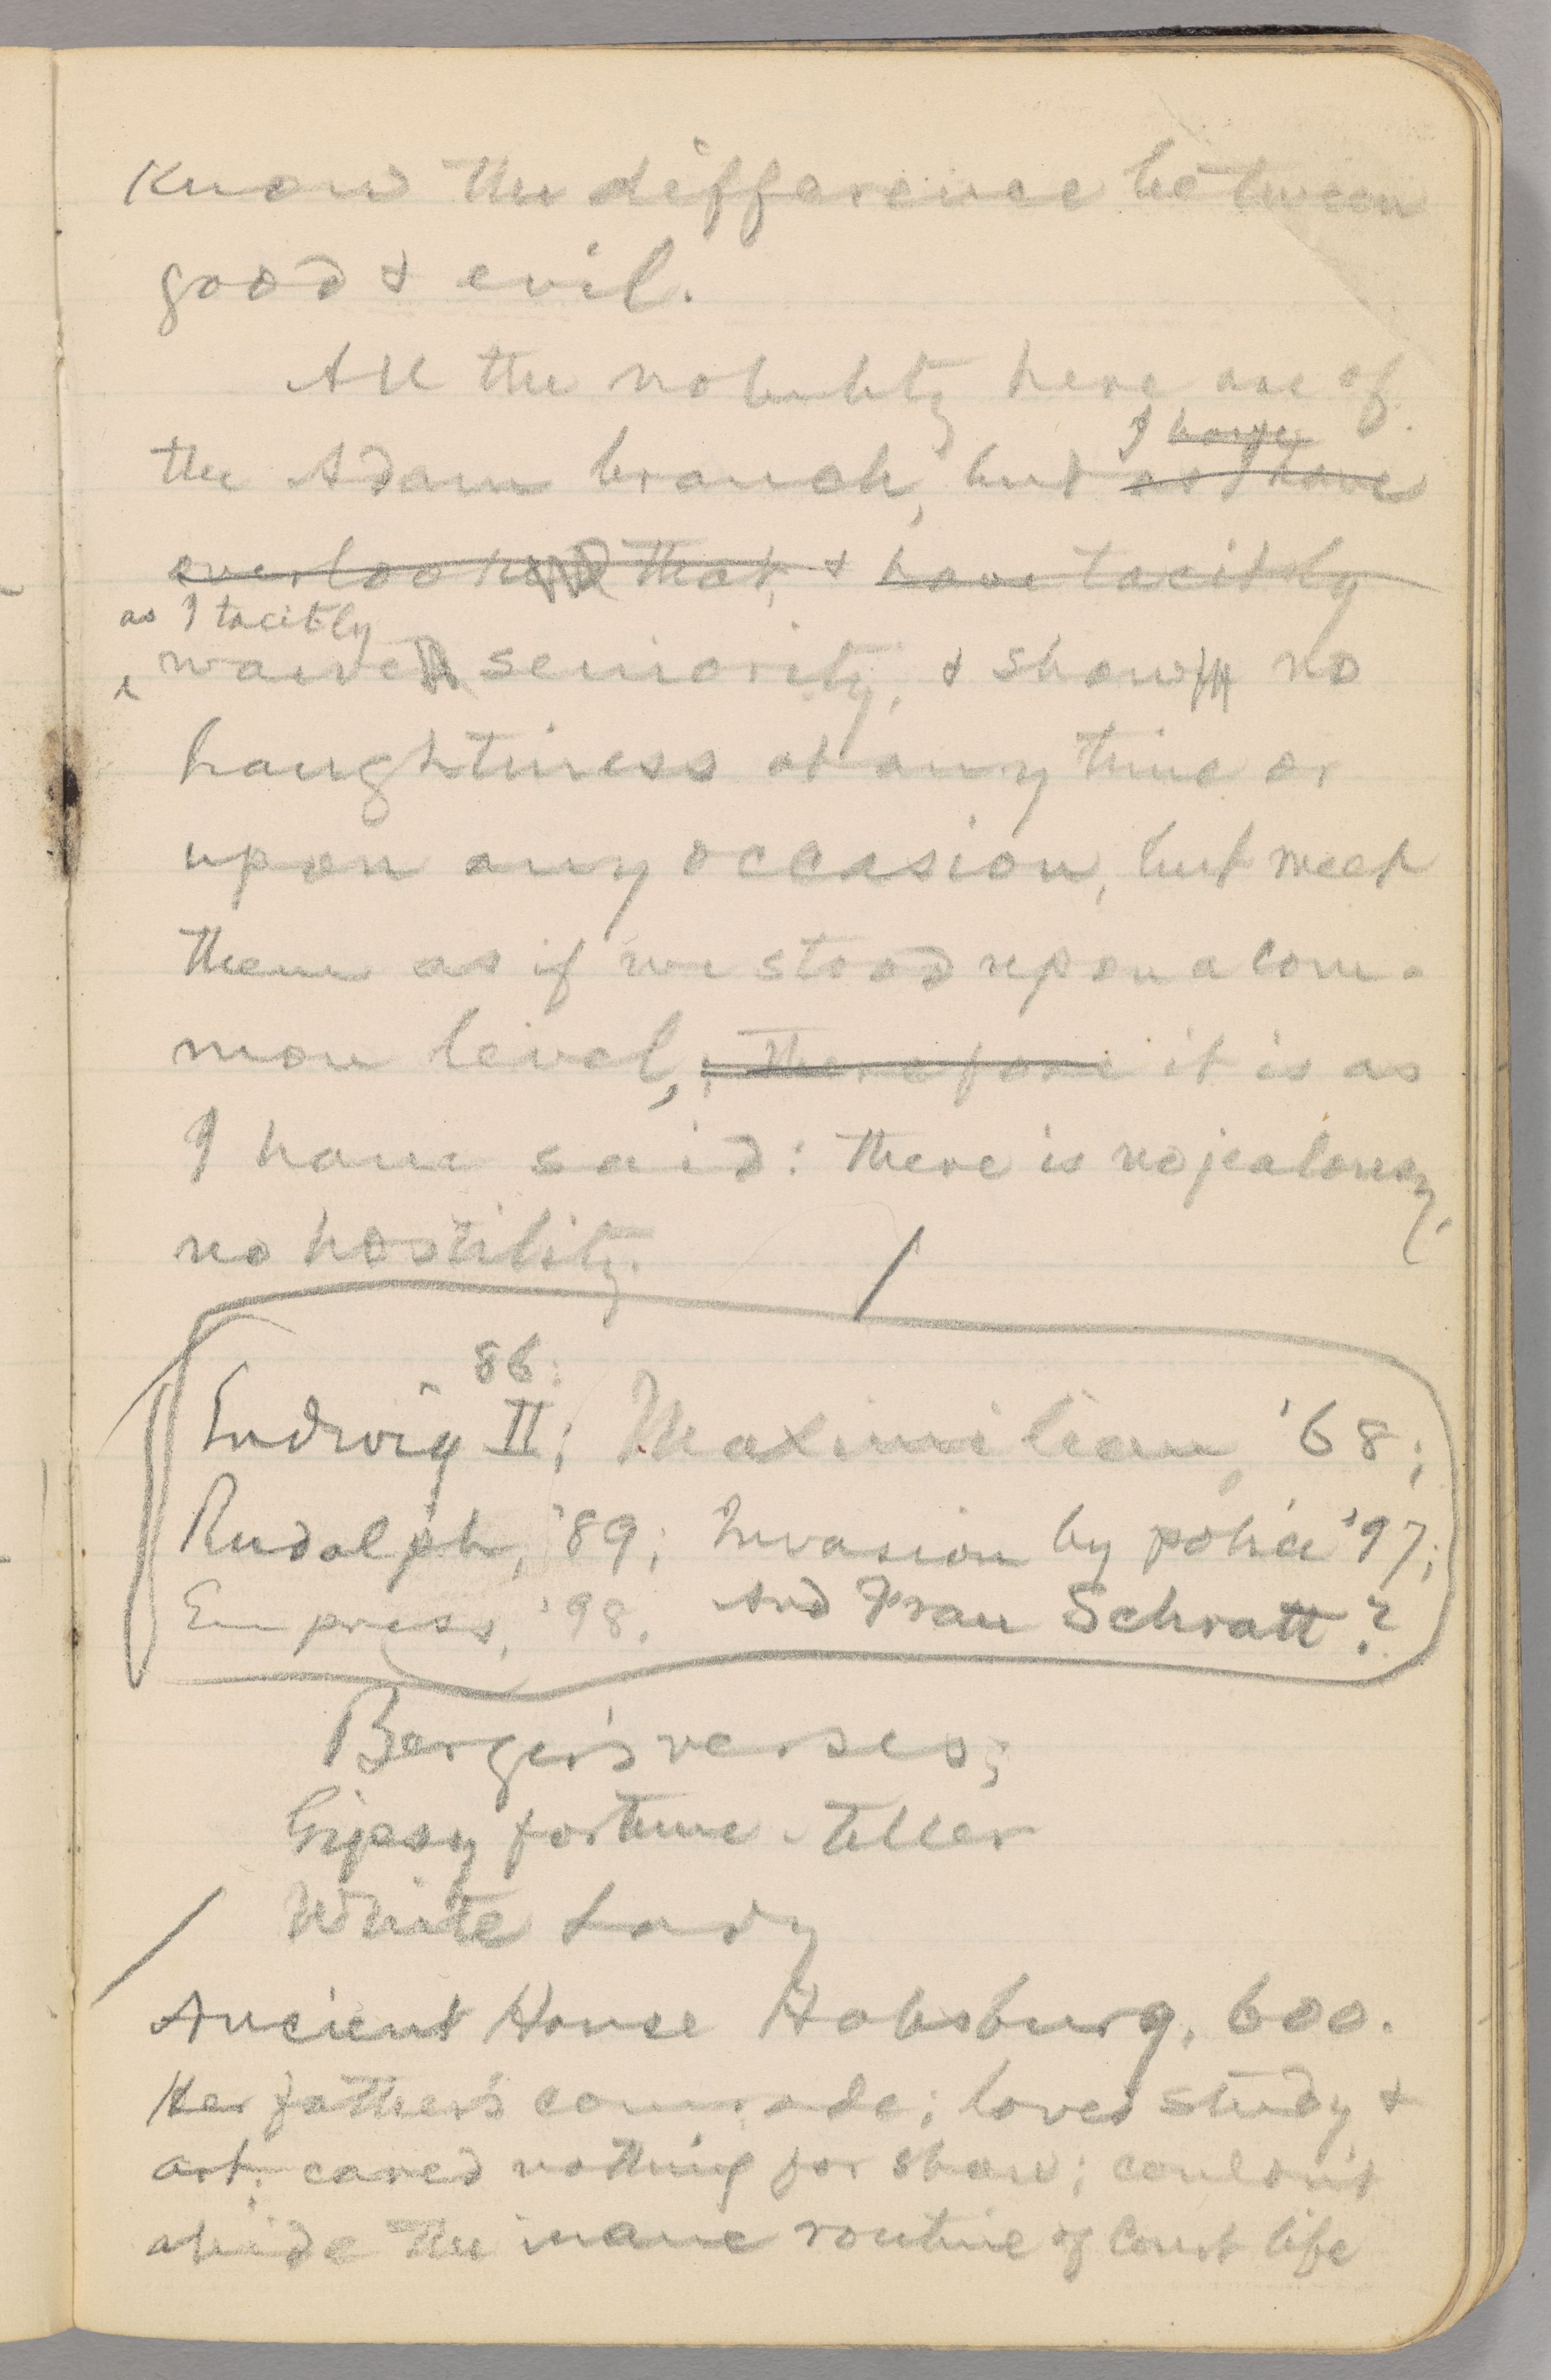 know the difference between
good & evil.
All the nobility here are of
I have
the Adam branch, but as I have
overlooked that, & have tacitly
as I tacitly
waive seniority, & show no
haughtiness at any time or
upon any occasion, but meet
them as if we stood upon a com-
mon level, ; therefore it is as
I have said: there is no jealousy,
no hostility.
86:
Ludwig II; Maximilian, '68;
Rudolph, '89; Invasion by police '97;
Empress, '98. And Frau Schratt?
Berger's verses;
Gipsy fortune-teller
White Lady
Ancient House Habsburg, 600.
Her father's comrade; loved study &
art; cared nothing for show; couldn't
abide the inane routine of Court life